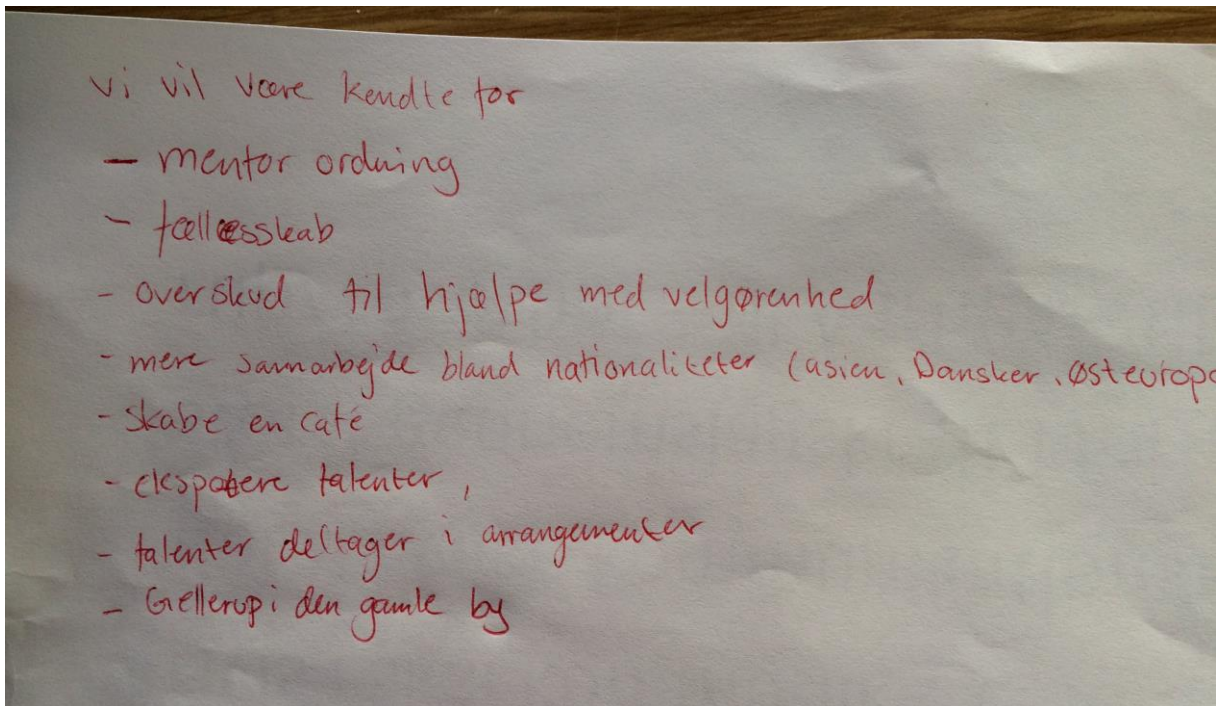 vi vil være kendte for
- mentor ordning
- fællesskab
- overskud til hjælpe med velgørenhed
- mere samarbejde bland nationaliteter (asien, Dansker, østeurop
- skabe en café
- talenter,
- talenter deltager i arrangementer
- Gellerup i den gamle by